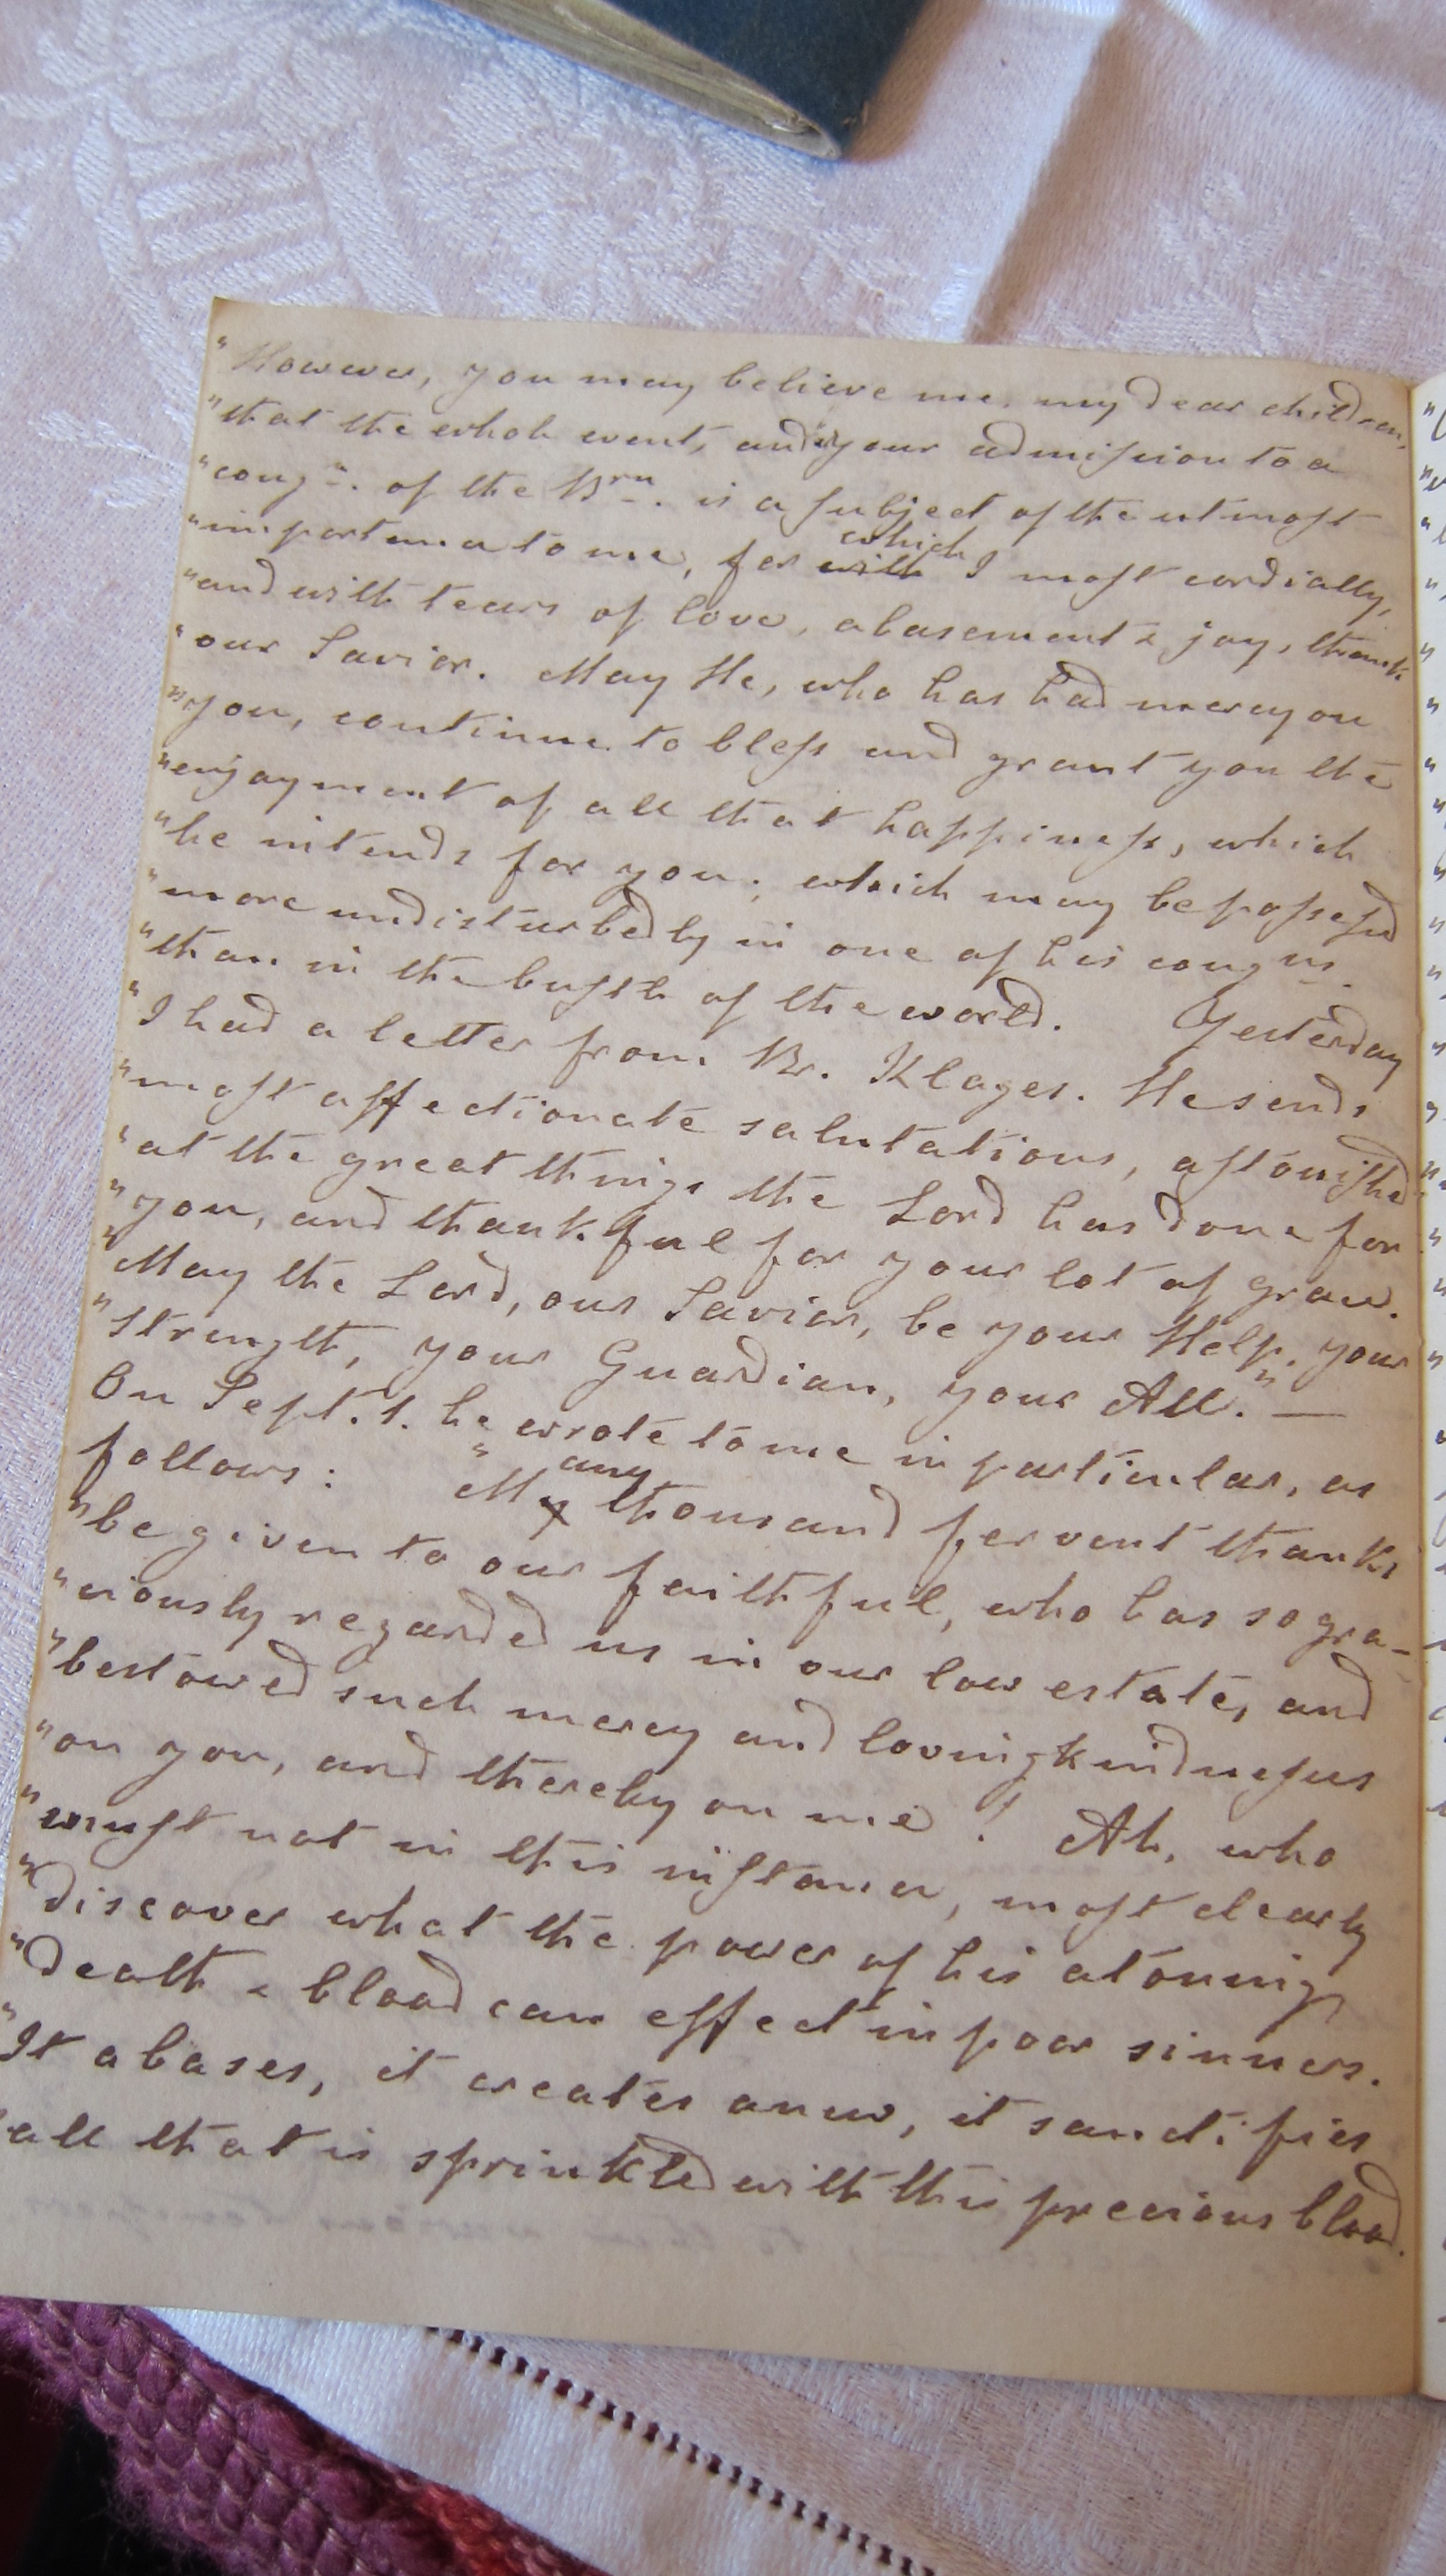 "However, you may believe me, my dear children,
"that the whole event, and your admission to a
"congn. of the Brn. is a subject of the utmost
"importance to me, for which I most cordially,
"and with tears of love, abasement & joy, thank
"our Savior. May He, who has had mercy on
"you, continue to bless and grant you the
"enjoyment of all that happiness, which
"he intends for you; which may be possessed
"more undisturbedly in one of his congns.
"than in the bustle of the world. Yesterday
"I had a letter from Br. Klages. He sends
"most affectionate salutations, astonished
"at the great things the Lord has done for
"you, and thankful for your lot of grace.
"May the Lord, our Savior, be your Help, your
"Strength, your Guardian, your All." —
On Sept. 1. he wrote to me in particular, as
follows: "Many thousand fervent thanks
"be given to our faithful, who has so gra-
"ciously regarded us in our low estate, and
"bestowed such mercy and lovingkindnesses
"on you, and thereby on me! Ah, who
"must not in this instance, most clearly
"discover what the power of his atoning
"death & blood can effect in poor sinners.
"It abases, it creates anew, it sanctifies
"all that is sprinkled with this precious blood.